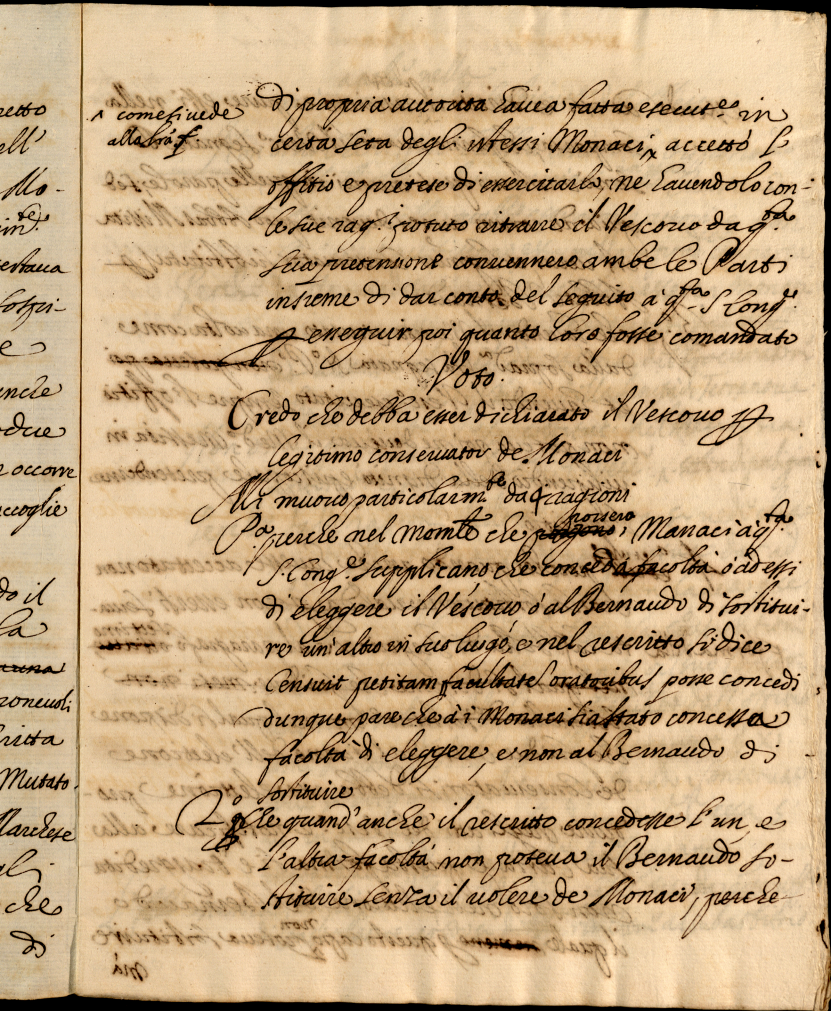 retto
ell'
Mo-
in.te
ertava
e
anche
occorre
accoglie
do il
la
ronevoli
ritta
Mutato.
Marchese
gli
che
di
^ come si vede
alla
di propria autorità havea fatta in
certa seta degli istessi Monaci, accettò l'
offitio e pretese di essercitarlo, ne havendolo con-
le sue rag.i potuto ritrarre il Vescovo da q.sta
sua pretensione convennero ambe le Parti
insieme di dar conto del seguito à q.sta S. Cong.e
esseguir poi quanto loro fosse comandato
Voto.
Credo che debba esser dichiarato il Vescovo
legitimo conservator de Monaci
Mi muovo particolarm.te da 4 ragioni
P.a perche nel mom.le che porsero i Monaci à q.sta
S. Cong.e supplicano che conceda facoltà ò ad essi
di eleggere il Vescovo ò al Bernaudo di sostitui-
re un'altro in suo luogo, e nel rescritto si dice
Censuit petitam facultatem oratoribus posse concedi
dunque pare che à i Monaci sia stato concessa
facoltà di eleggere, e non al Bernaudo di
sostituire
2.o che quand'anche il rescritto concedesse l'un, e
l'altra facoltà non poteva il Bernaudo so-
stituire senza il volere de Monaci, perche